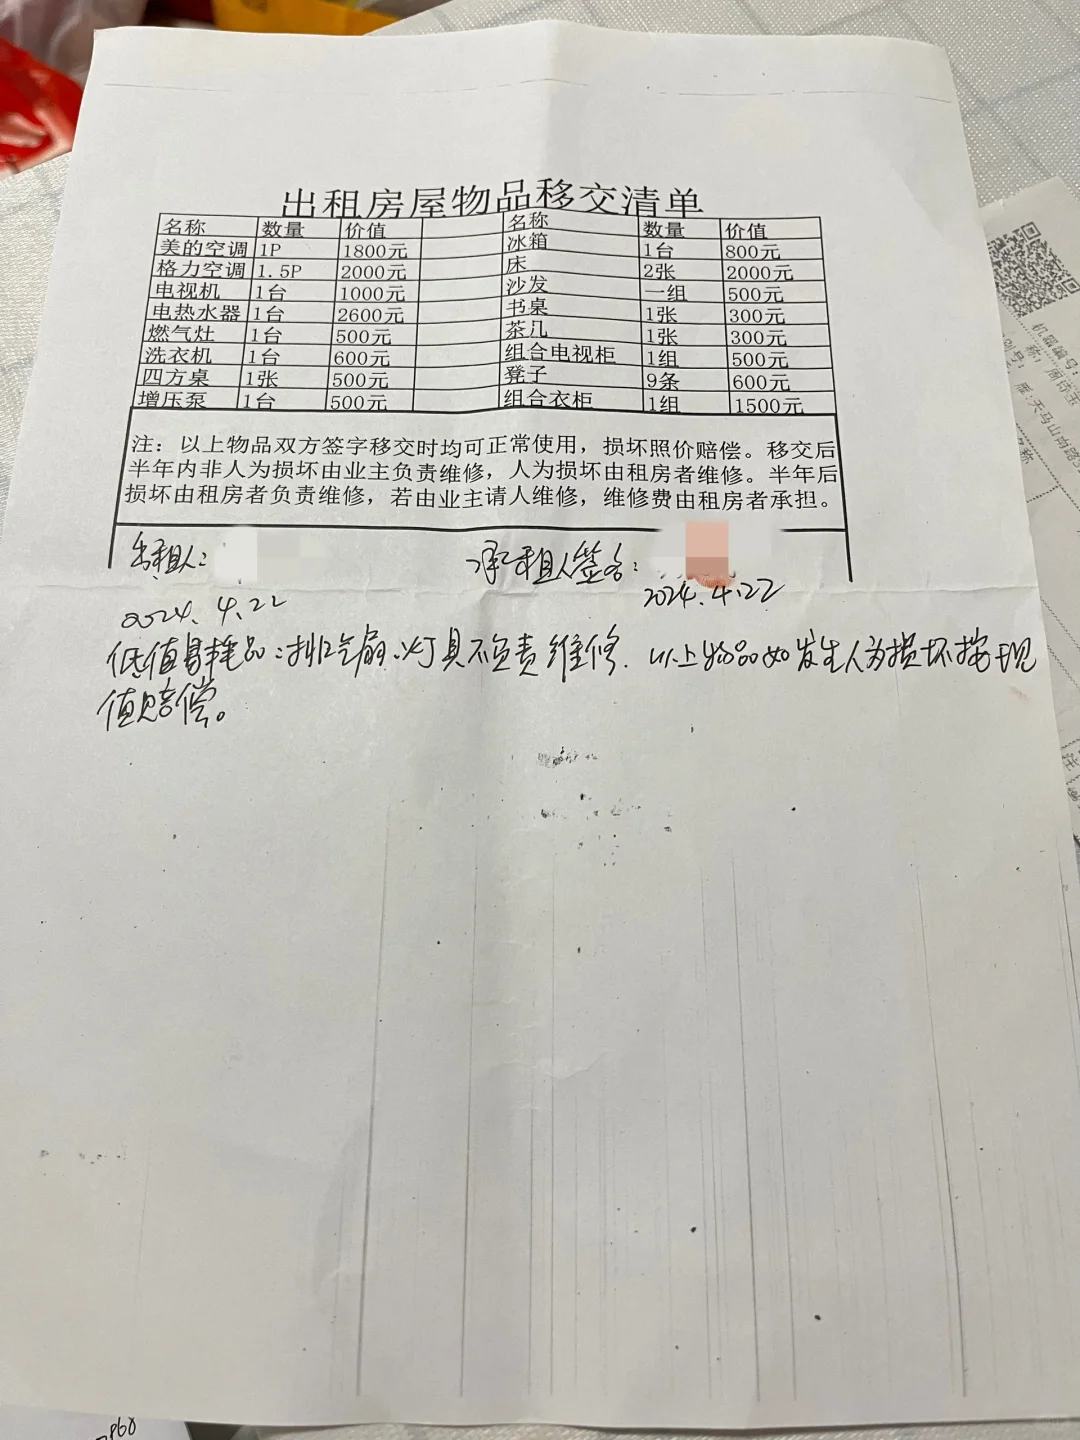 出租房屋物品移交清单
名称 数量 价值 名称 数量 价值
美的空调 1P 1800元 冰箱 1台 800元
格力空调 1.5P 2000元 床 2张 2000元
电视机 1台 1000元 沙发 一组 500元
电热水器 1台 2600元 书桌 1张 300元
燃气灶 1台 500元 茶几 1张 300元
洗衣机 1台 600元 组合电视柜 1组 500元
四方桌 1张 500元 凳子 9条 600元
增压泵 1台 500元 组合衣柜 1组 1500元
注：以上物品双方签字移交时均可正常使用，损坏照价赔偿。移交后
半年内非人为损坏由业主负责维修，人为损坏由租房者维修。半年后
损坏由租房者负责维修，若由业主请人维修，维修费由租房者承担。
出租人： 承租人签名：
2024.4.22 2024.4.22
低值易耗品：排气扇、灯具不负责维修．以上物品如发生人为损坏按现
值赔偿。
机器编号：
天马山尚路
P68